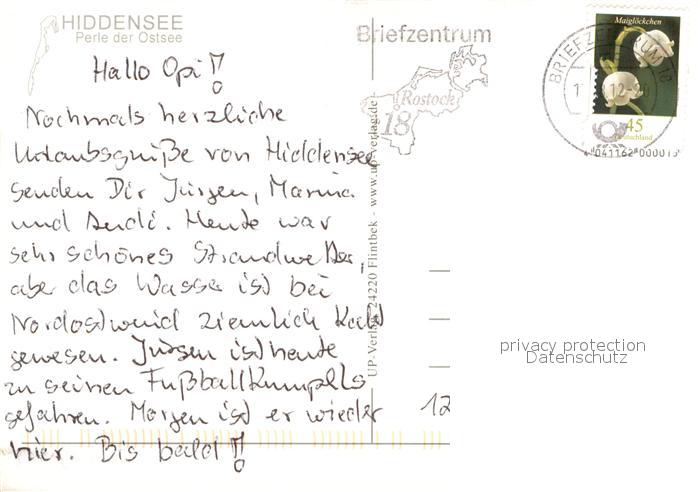 HIDDENSEE
Perle der Ostsee
Hallo Opi!
Nochmals herzliche
Urlaubsgrüße von Hiddensee
senden Dir Jürgen, Marina
und Andi. Heute war
sehr schönes Strandwetter,
aber das Wasser ist bei
Nordostwind ziemlich kalt
gewesen. Jürgen ist heute
zu seinen Fußballkumpels
gefahren. Morgen ist er wieder
hier. Bis bald!
UP-Verlag, 24220 Flintbek - www.up-verlag.de
Briefzentrum
Rostock
18
BRIEFZENTRUM 18
Maiglöckchen
45
Deutschland
privacy protection
Datenschutz
12